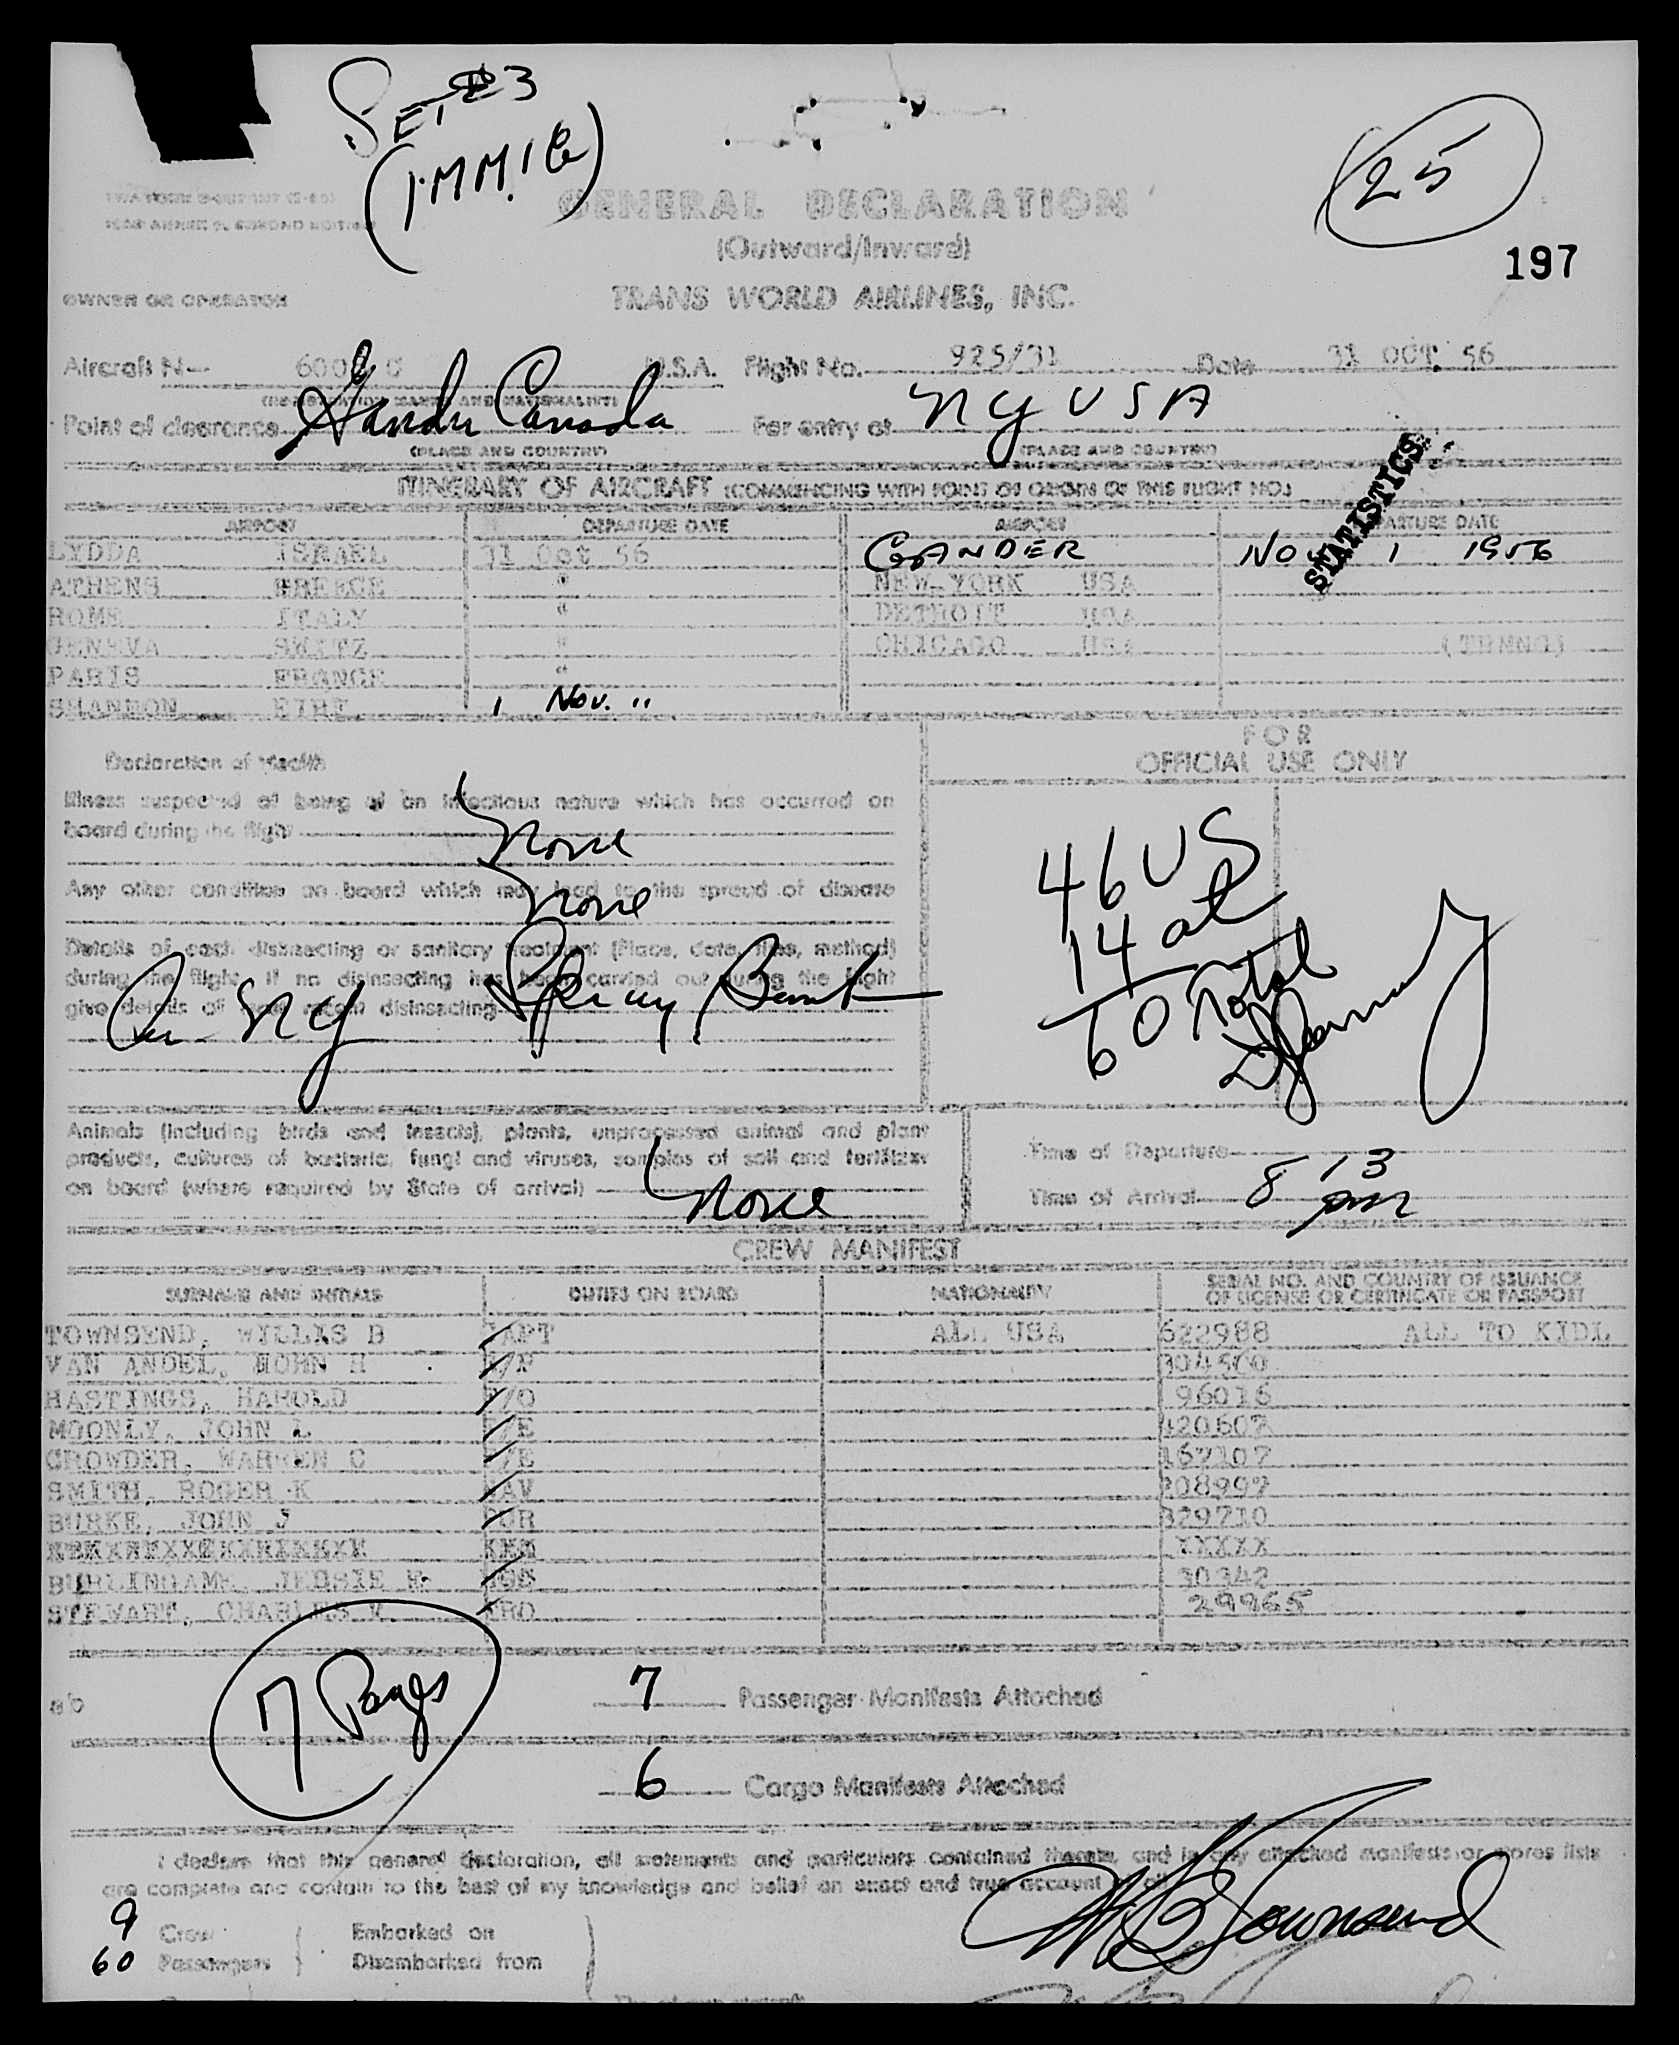 SET #3
(IMMIG)
25
GENERAL DECLARATION
(Outward/Inward)
197
OWNER OR OPERATOR
TRANS WORLD AIRLINES, INC.
Aircraft N— U.S.A. Flight No. 925/31 Date 31 OCT. 56
Point of clearance Gander Canada For entry at NY USA
(PLACE AND COUNTRY) (PLACE AND COUNTRY)
STATISTICS
ITINERARY OF AIRCRAFT (COMMENCING WITH POINT OF ORIGIN OF THIS FLIGHT NO.)
AIRPORT DEPARTURE DATE AIRPORT DEPARTURE DATE
LYDDA ISRAEL 31 Oct 56 GANDER NOV 1 1956
ATHENS GREECE " NEW YORK USA
ROME ITALY " DETROIT USA
GENEVA SWITZ " CHICAGO USA (TRMNG)
PARIS FRANCE "
SHANNON EIRE 1 Nov. "
Declaration of Health
FOR
OFFICIAL USE ONLY
Illness suspected of being of an infectious nature which has occurred on
board during the flight None
Any other condition on board which may lead to the spread of disease
None
Details of each disinsecting or sanitary treatment (Place, date, time, method)
during the flight. If no disinsecting has been carried out during the flight
give details of most recent disinsecting
46 US
14 al
60 Total
Animals (including birds and insects), plants, unprocessed animal and plant
products, cultures of bacteria, fungi and viruses, samples of soil and fertilizer
on board (where required by State of arrival) None
Time of Departure
Time of Arrival 8 13 pm
CREW MANIFEST
SURNAME AND INITIALS DUTIES ON BOARD NATIONALITY SERIAL NO. AND COUNTRY OF ISSUANCE
OF LICENSE OR CERTIFICATE OR PASSPORT
TOWNSEND, WILLIS B CAPT ALL USA 622988 ALL TO KIDL
VAN ANDEL, JOHN H 304560
HASTINGS, HAROLD F/O 96016
MOONLY, JOHN L F/E 420607
CROWDER, WARREN C F/E 167107
SMITH, ROGER K NAV 208997
BURKE, JOHN J PUR 329710
XXXXX
BURLINGAME, JESSIE 30342
STEWART, CHARLES 29965
7 Pages
7 Passenger Manifests Attached
6 Cargo Manifests Attached
I declare that this general declaration, all statements and particulars contained therein, and in any attached manifests or stores lists
are complete and contain to the best of my knowledge and belief an exact and true account of all
W B Townsend
9 Crew Embarked on
60 Passengers Disembarked from